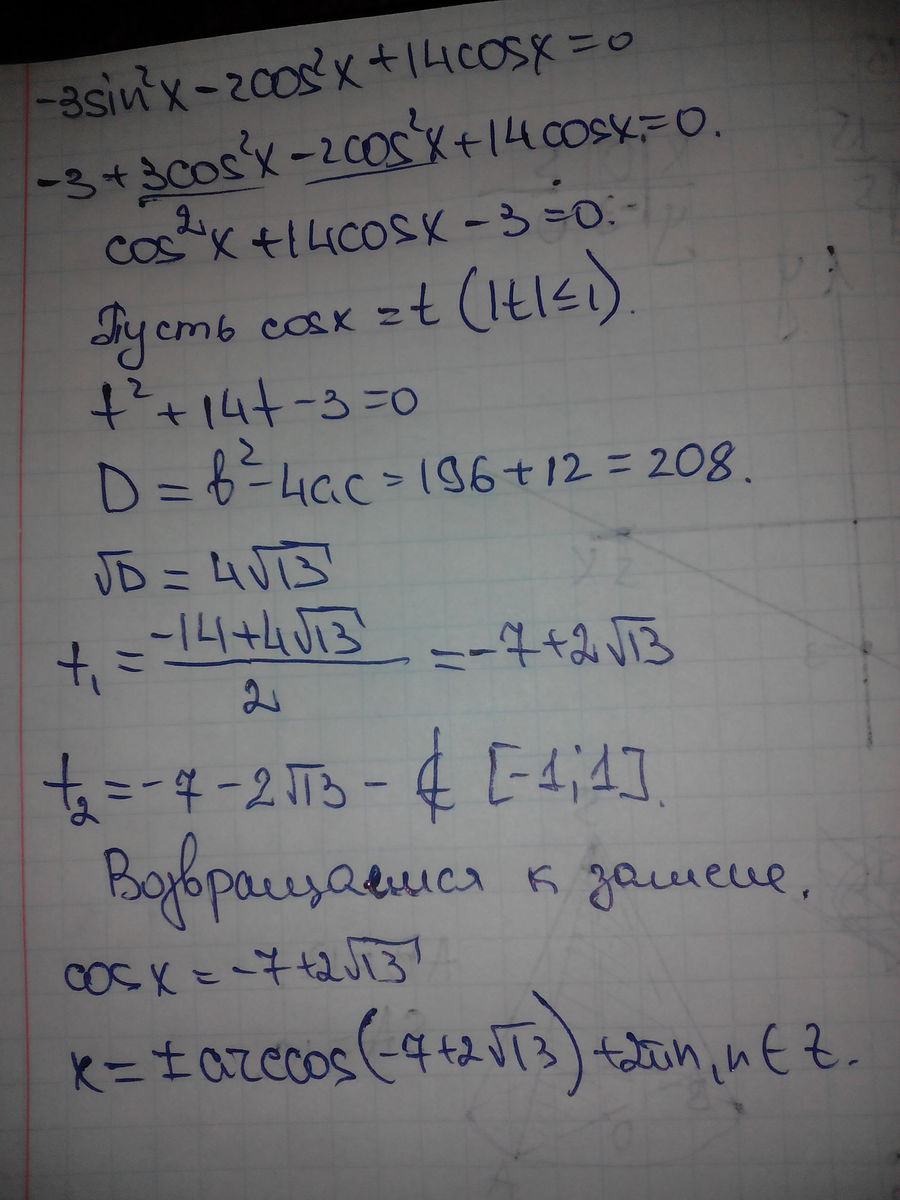 -3sin²x - 2cos²x + 14cosx = 0
-3 + 3cos²x - 2cos²x + 14cosx = 0.
cos²x + 14cosx - 3 = 0.
Пусть cosx = t (|t| ≤ 1).
t² + 14t - 3 = 0
D = b² - 4ac = 196 + 12 = 208.
√D = 4√13
t₁ = (-14 + 4√13)/2 = -7 + 2√13
t₂ = -7 - 2√13 - ∉ [-1; 1].
Возвращаемся к замене.
cosx = -7 + 2√13
x = ± arccos(-7 + 2√13) + 2πn, n ∈ Z.